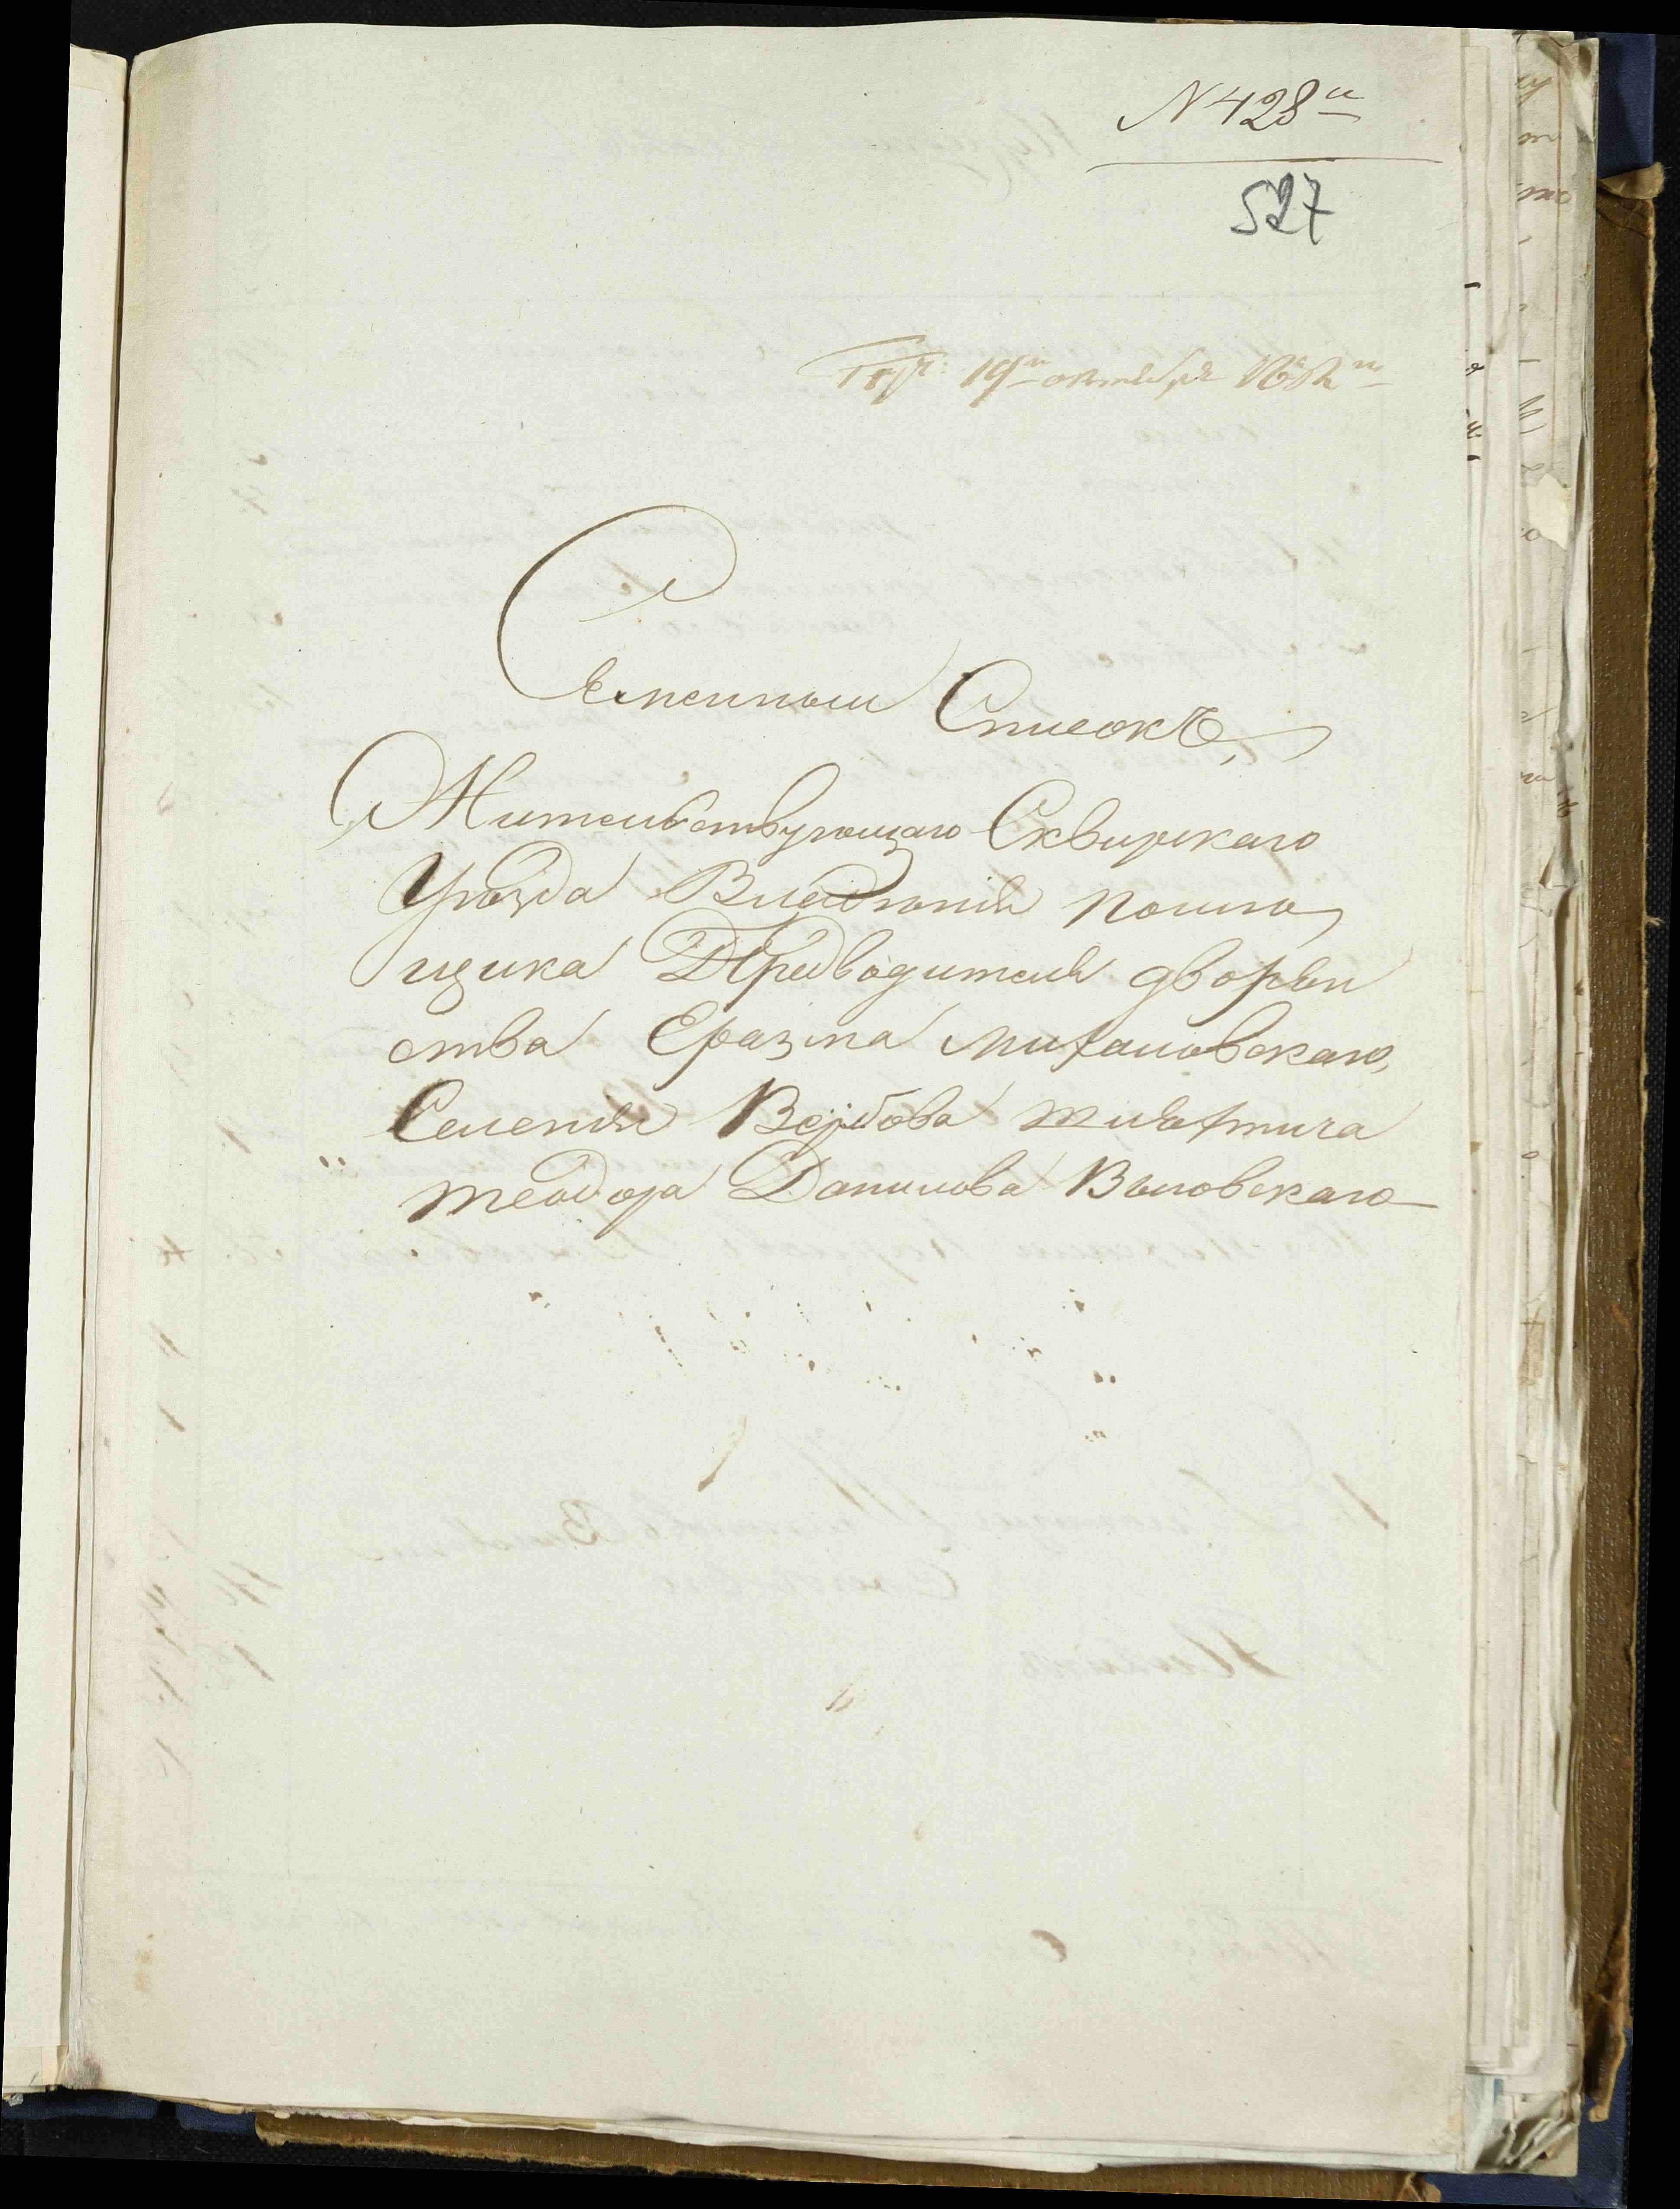 N 428й
527
19го октября
Семейный Списокъ,
Жительствующаго Сквирскаго
Уѣзда Владѣнія помѣ
щика Предводителя дворян
ства Еразма Михаловскаго,
Селенія Вербова шляхтича
Теодора Данилова Выговскаго